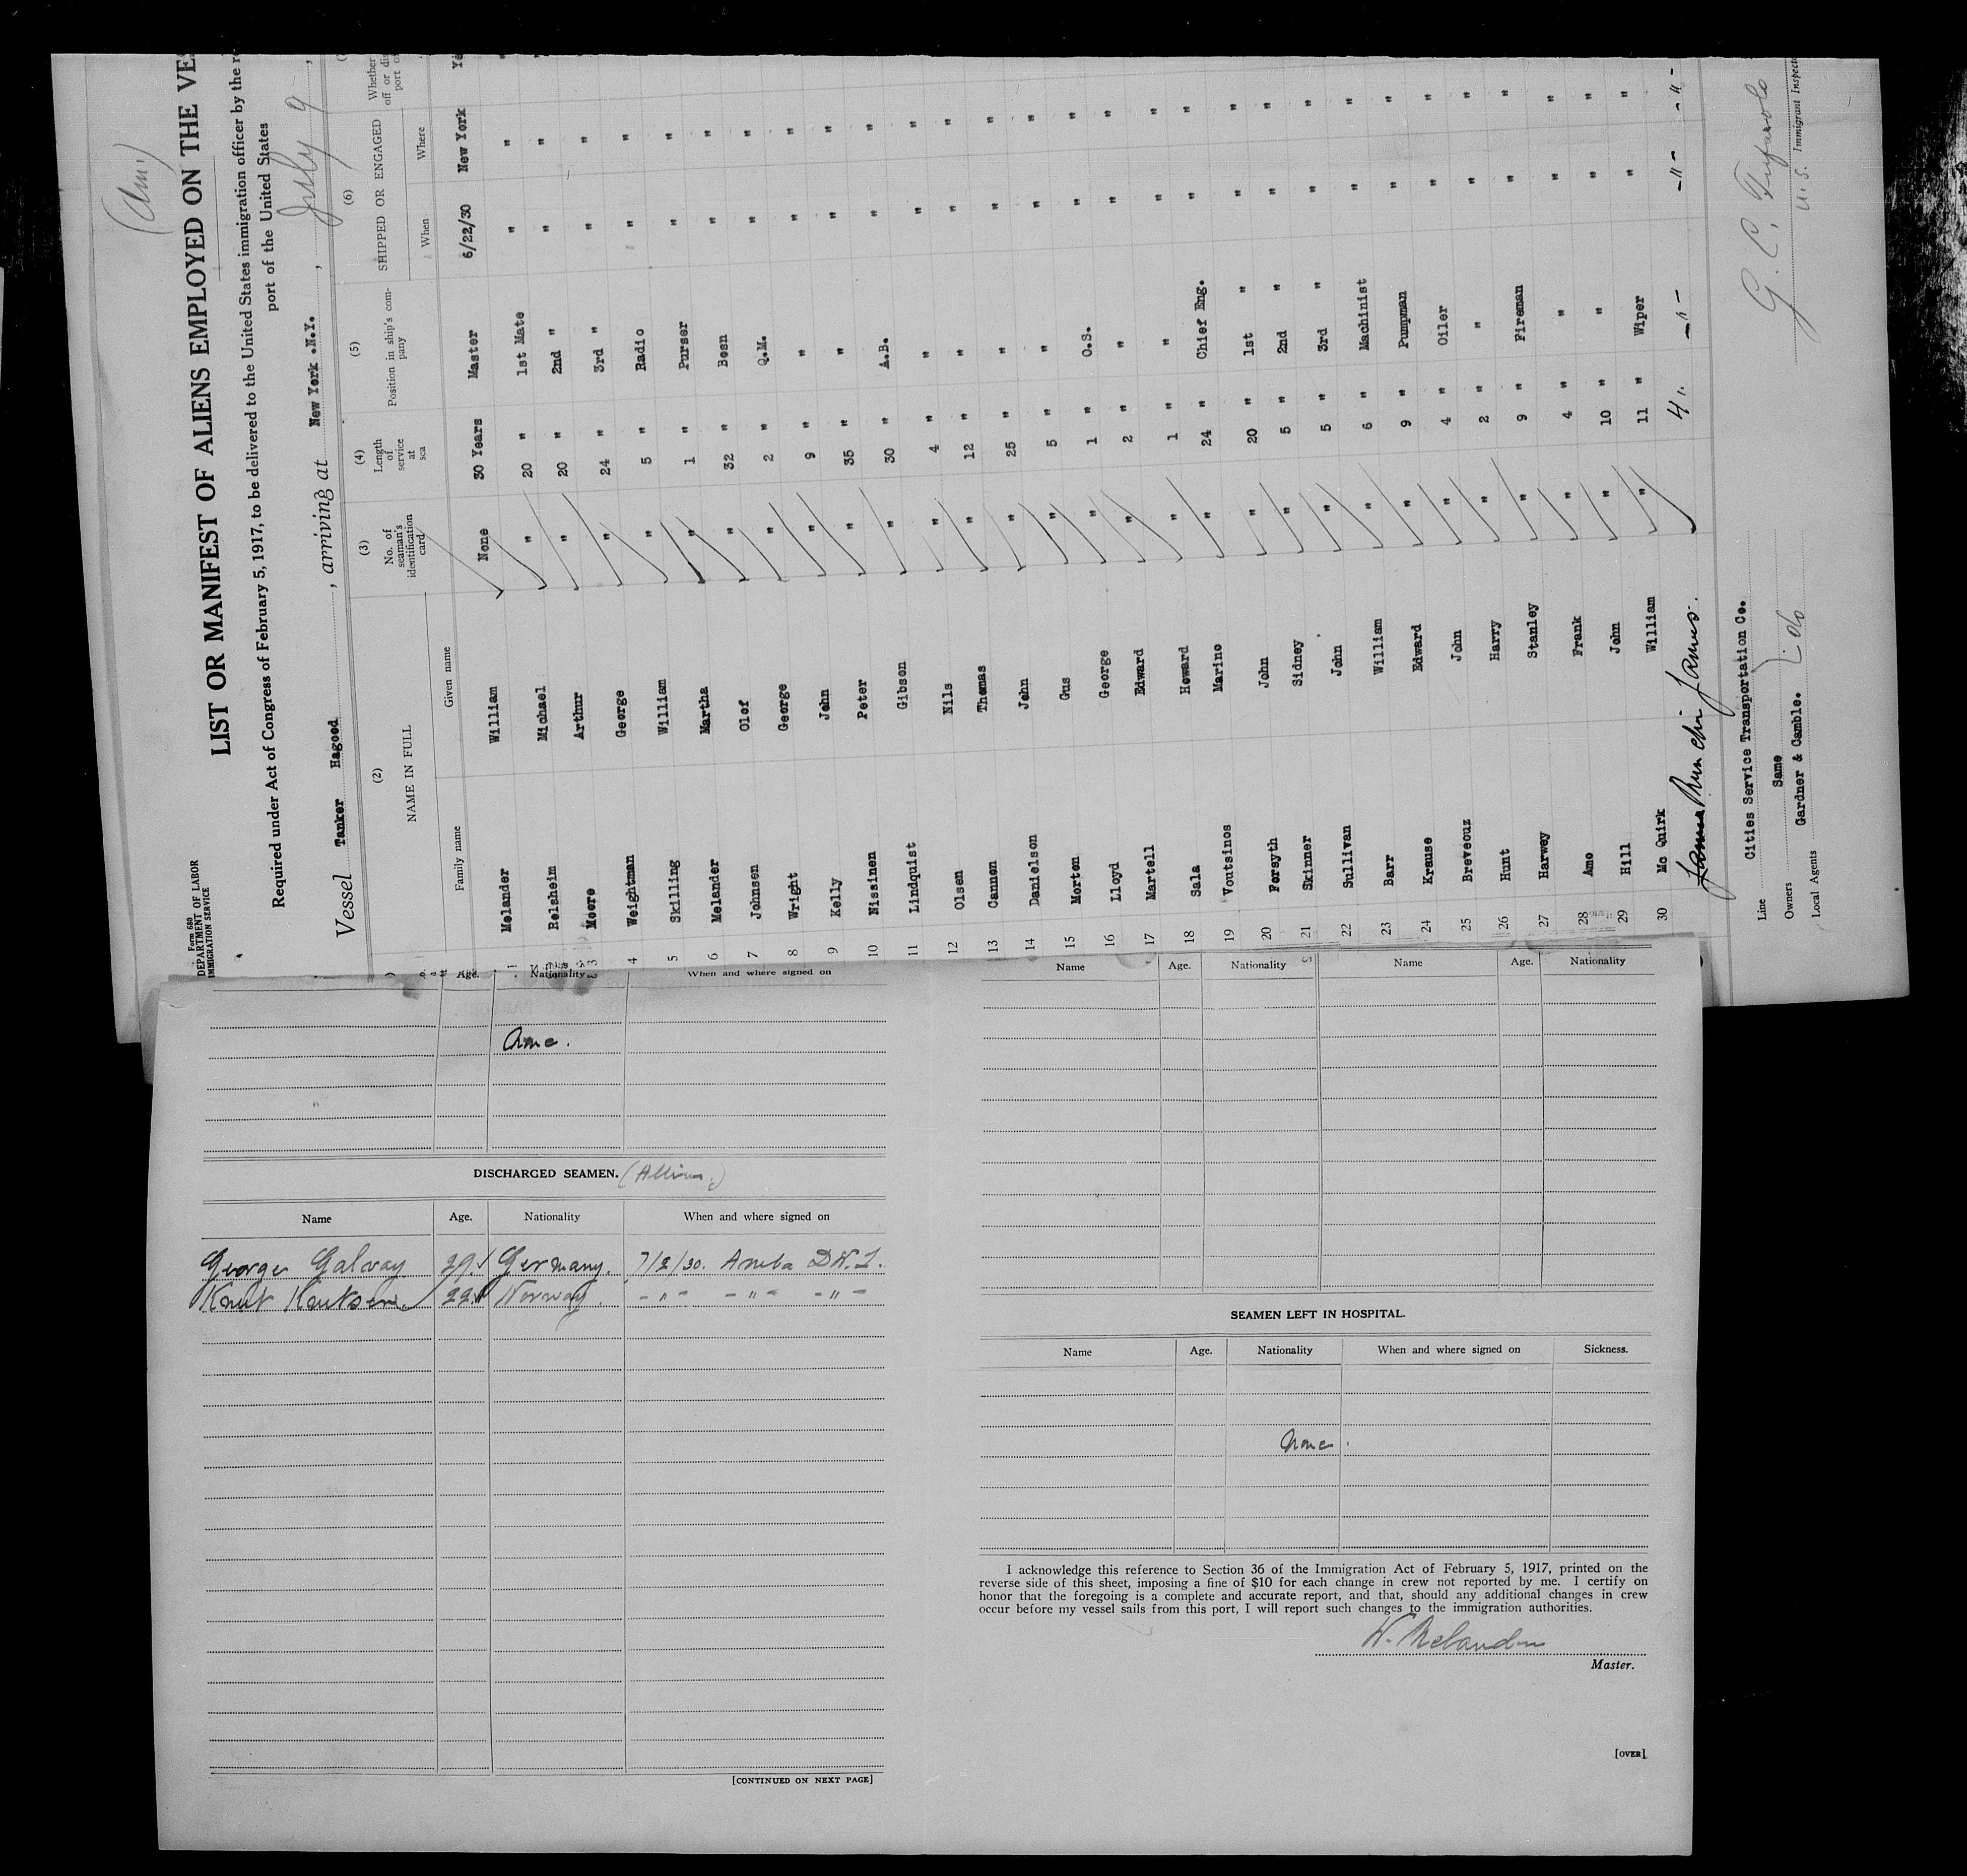 (Am.)
Form 680
DEPARTMENT OF LABOR
IMMIGRATION SERVICE
LIST OR MANIFEST OF ALIENS EMPLOYED ON THE VE
Required under Act of Congress of February 5, 1917, to be delivered to the United States immigration officer by the r
port of the United States
Vessel Tanker Hagood , arriving at New York .N.Y. , July 9 ,
(2) (3) (4) (5) (6)
NAME IN FULL No. of seaman's identification card Length of service at sea Position in ship's company SHIPPED OR ENGAGED Whether
off or dis
port o
Family name Given name When Where
1 Melander William None 30 Years Master 6/22/30 New York Ye
2 Relsheim Michael " 20 " 1st Mate " " "
3 Moore Arthur " 20 " 2nd " " " "
4 Weightman George " 24 " 3rd " " " "
5 Skilling William " 5 " Radio " " "
6 Melander Martha " 1 " Purser " " "
7 Johnsen Olof " 32 " Bosn " " "
8 Wright George " 2 " Q.M. " " "
9 Kelly John " 9 " " " " "
10 Nissinen Peter " 35 " " " " "
11 Lindquist Gibson " 30 " A.B. " " "
12 Olsen Nils " 4 " " " " "
13 Cannon Thomas " 12 " " " " "
14 Danielson John " 25 " " " " "
15 Morton Gus " 5 " " " " "
16 Lloyd George " 1 " O.S. " " "
17 Martell Edward " 2 " " " " "
18 Sala Howard " 1 " " " " "
19 Voutsinos Marino " 24 " Chief Eng. " " "
20 Forsyth John " 20 " 1st " " " "
21 Skinner Sidney " 5 " 2nd " " " "
22 Sullivan John " 5 " 3rd " " " "
23 Barr William " 6 " Machinist " " "
24 Krause Edward " 9 " Pumpman " " "
25 Breveouz John " 4 " Oiler " " "
26 Hunt Harry " 2 " " " " "
27 Harwey Stanley " 9 " Fireman " " "
28 Amo Frank " 4 " " " " "
29 Hill John " 10 " " " " "
30 Mc Quirk William " 11 " Wiper " " "
James. 4 " - " - - " - - " -
Line Cities Service Transportation Co.
Owners Same
Local Agents Gardner & Gamble. do
G. C.
U.S. Immigrant Inspect
Age. Nationality When and where signed on
None.
DISCHARGED SEAMEN.
Name Age. Nationality When and where signed on
George Galway 29 Germany. 7/2/30. Aruba D.W.I.
Knut Knutsen 22 Norway. - " - - " - - " -
[CONTINUED ON NEXT PAGE]
Name Age. Nationality Name Age. Nationality
SEAMEN LEFT IN HOSPITAL.
Name Age. Nationality When and where signed on Sickness.
None.
I acknowledge this reference to Section 36 of the Immigration Act of February 5, 1917, printed on the
reverse side of this sheet, imposing a fine of $10 for each change in crew not reported by me. I certify on
honor that the foregoing is a complete and accurate report, and that, should any additional changes in crew
occur before my vessel sails from this port, I will report such changes to the immigration authorities.
W. Melander
Master.
[OVER]